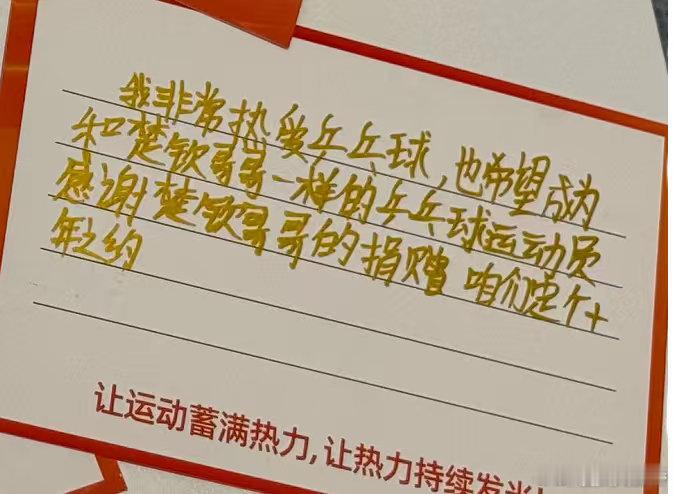 我非常热爱乒乓球,也希望成为
和楚钦哥哥一样的乒乓球运动员
感谢楚钦哥哥的捐赠 咱们定个十
年之约
让运动蓄满热力,让热力持续发光